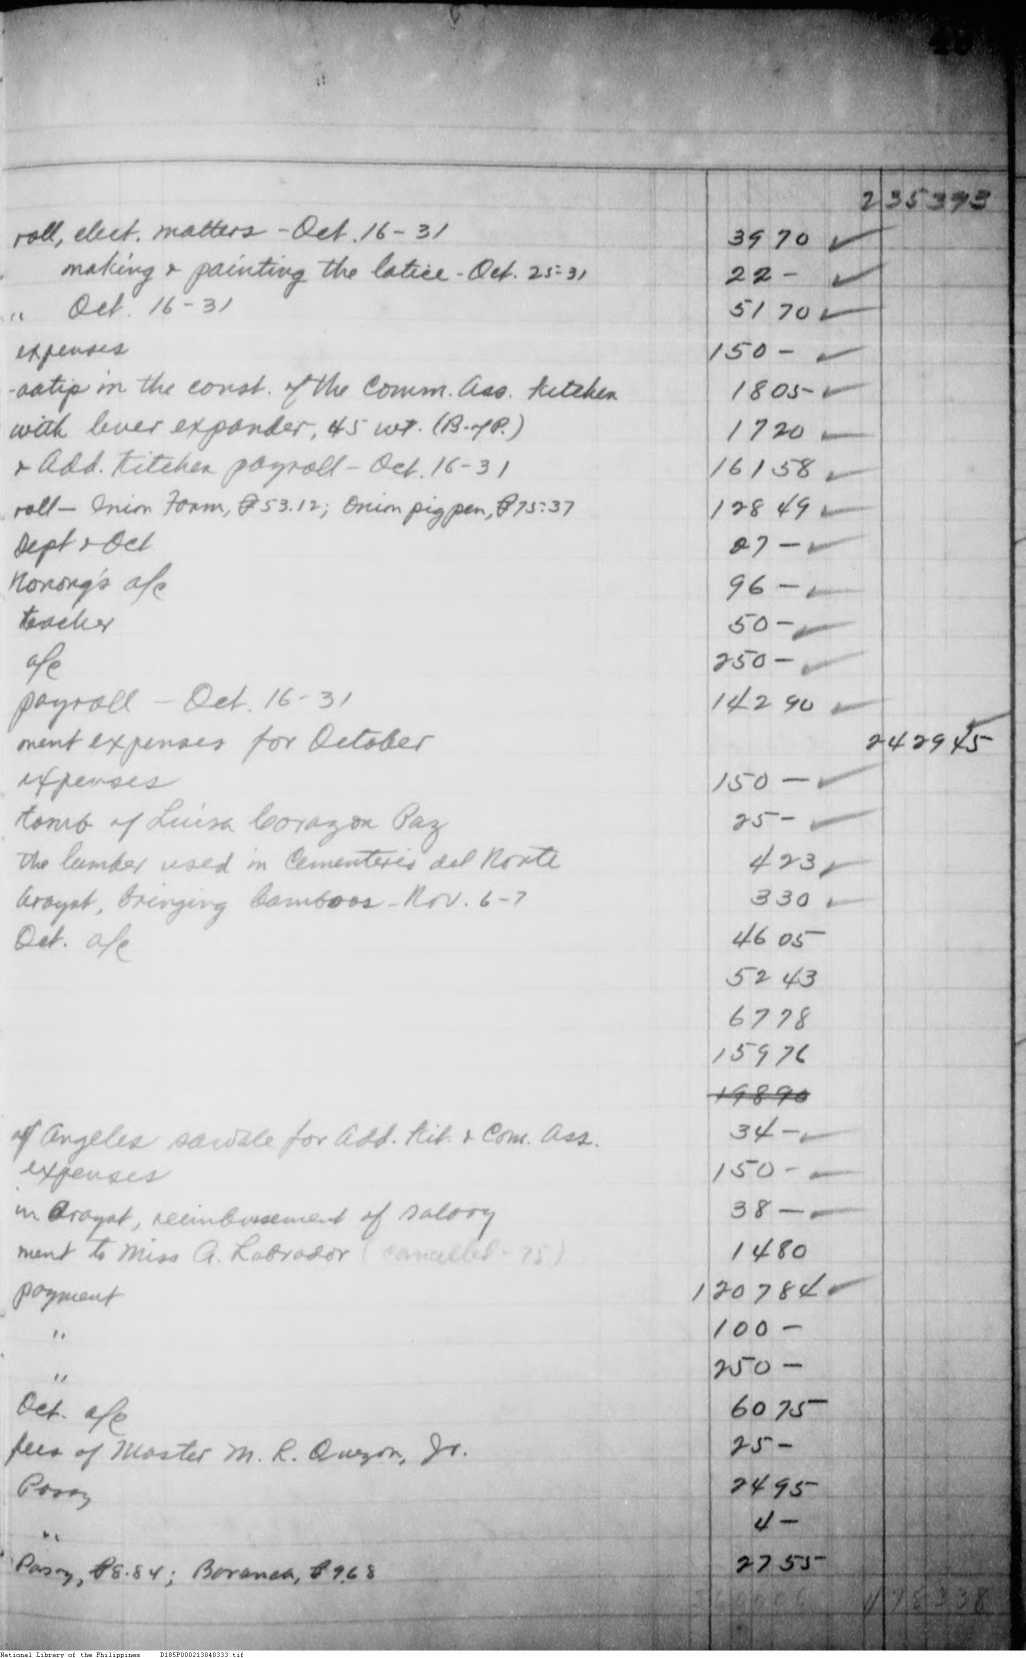 235393
roll, elect. matters - Oct. 16-31 3970
making & painting the latice - Oct. 25-31 22-
" Oct. 16-31 5170
expenses 150-
in the const. of the Comm. Ass. Kitchen 1805
with lever expander, 45 wt. (B. of P.) 1720
& Add. Kitchen payroll - Oct. 16-31 16158
roll - Onion Farm, ₱53.12; Onion pig pen, ₱75.37 12849
Sept & Oct 27-
Nonong's a/c 96-
teacher 50-
a/c 250-
payroll - Oct. 16-31 14290
ment expenses for October 242945
expenses 150-
tomb of Luisa Corazon Paz 25-
the lumber used in Cementerio del Norte 423
Arayat, bringing bamboos - Nov. 6-7 330
Oct. a/c 4605
5243
6778
15976
19890
of Angeles sawale for Add. Kit. & Com. Ass. 34-
expenses 150-
in Arayat, reimbursement of salary 38-
ment to Miss A. Labrador (cancelled - 75) 1480
payment 120784
" 100-
" 250-
Oct. a/c 6075
fees of Master M. R. Quezon, Jr. 25-
Pasay 2495
" 4-
Pasay, ₱8.84; Baranca, ₱9.68 2755
478338
National Library of the Philippines D185P000213840333.tif